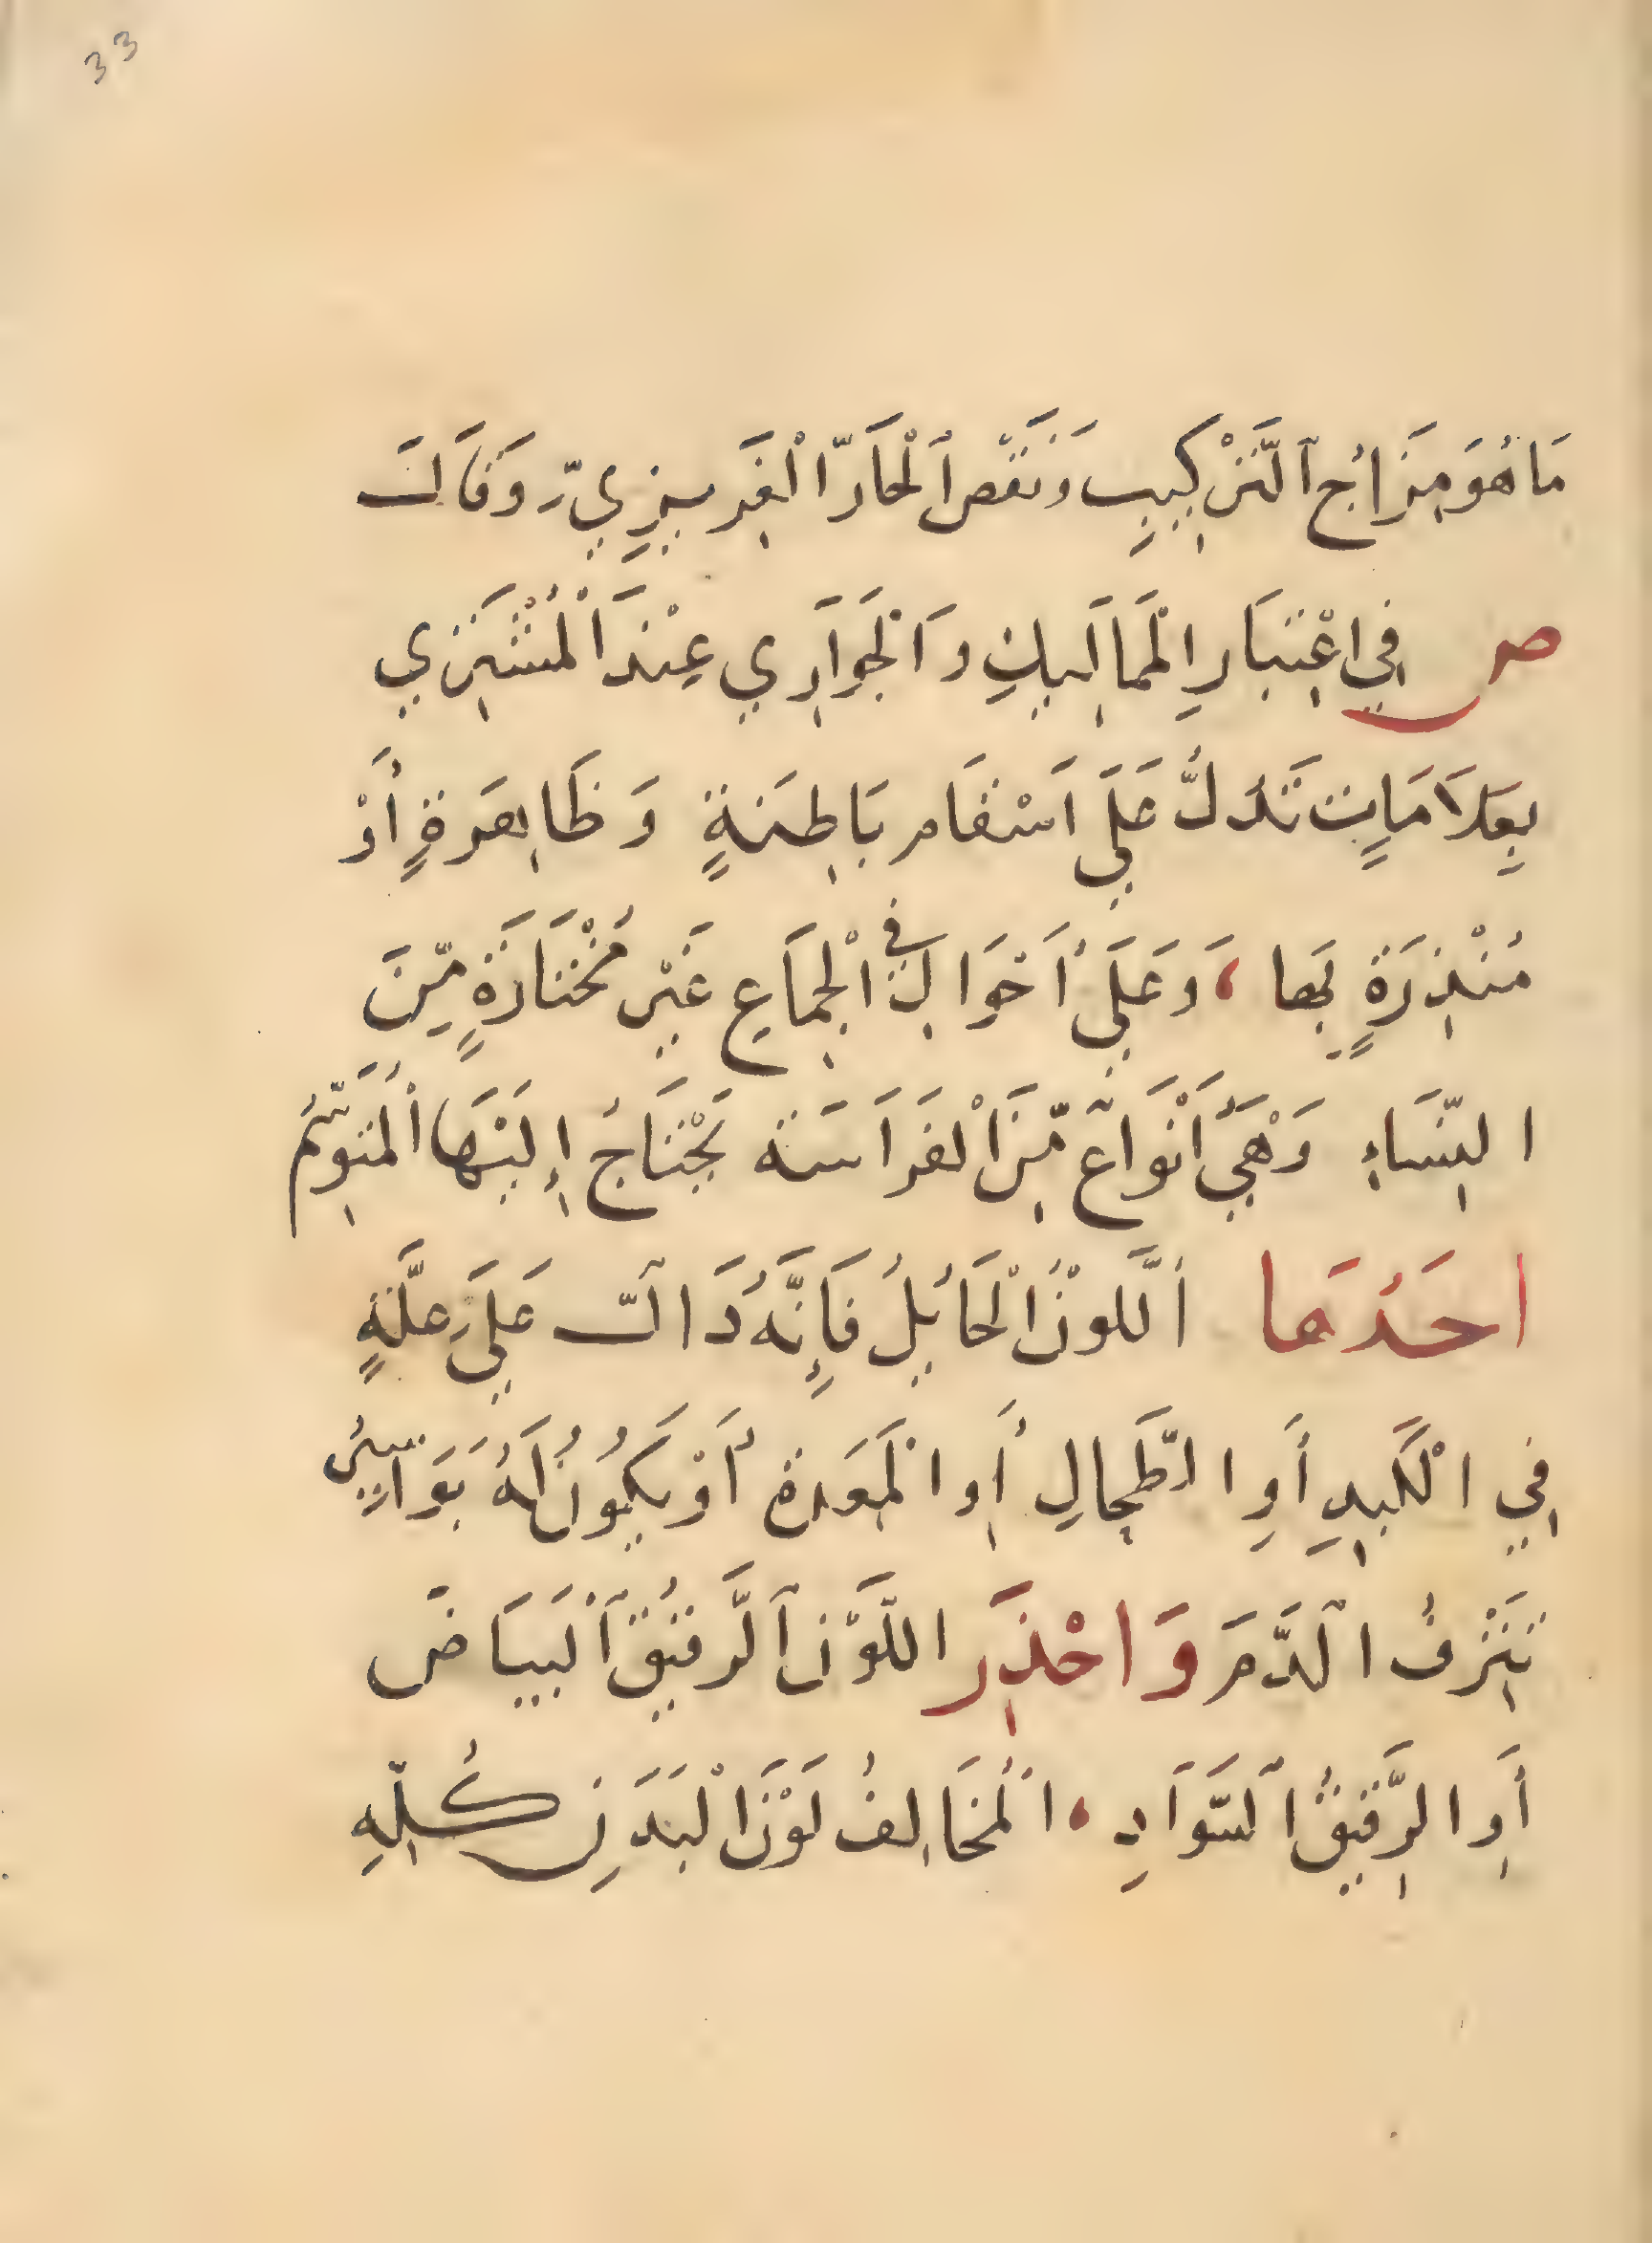 33
مَا هُوَ مِزَاجُ اَلتَّرْكِيبِ وَنَقْصِ اَلْحَارِّ الْغَرِيزِيِّ وَقَالَ
ص فِي اعْتِبَارِ الْمَمَالِيكِ وَالْجَوَارِي عِنْدَ الْمُشْتَرِي
بِعَلَامَاتٍ تَدُلُّ عَلَى اَسْقَامٍ بَاطِنَةٍ وَظَاهِرَةٍ أَوْ
مُنْذِرَةٍ بِهَا ، وَعَلَى أَحْوَالٍ فِي الْجِمَاعِ غَيْرِ مُخْتَارَةٍ مِّنَ
النِّسَاءِ وَهْيَ أَنْوَاعٌ مِّنَ الْفَرَاسَة يَحْتَاجُ إِلَيْهَا الْمُتَوَسِّمُ
احَدُهَا اَللَّوْنُ الْحَائِلُ فَإِنَّهُ دَالٌّ عَلَى عِلَّةٍ
فِي الْكَبِدِ أَوِ الطِّحَالِ أَوِ الْمَعِدَة أَوْ يَكُونُ لَهُ بَوَاسِيرُ
تَنْزِفُ الدَّمَ وَاحْذَرِ اللَّوْنَ اَلرَّقِيقَ اَلْبَيَاضِ
أَوِ الرَّقِيقَ السَّوَادِ ، اَلْمُخَالِفُ لَوْنَ الْبَدَنِ كُلِّهِ